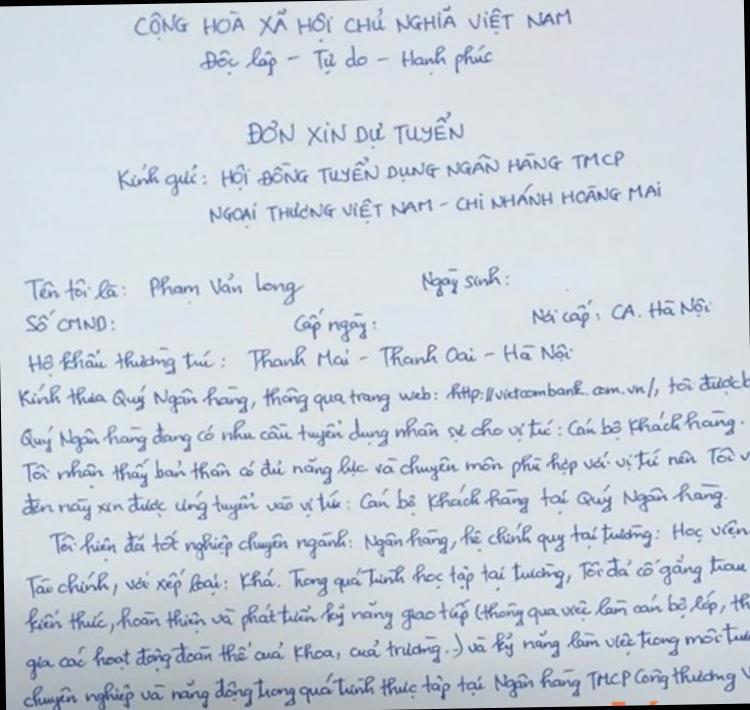 CỘNG HOÀ XÃ HỘI CHỦ NGHĨA VIỆT NAM
Độc lập - Tự do - Hạnh phúc
ĐƠN XIN DỰ TUYỂN
Kính gửi: HỘI ĐỒNG TUYỂN DỤNG NGÂN HÀNG TMCP
NGOẠI THƯƠNG VIỆT NAM - CHI NHÁNH HOÀNG MAI
Tên tôi là: Phạm Văn Long Ngày sinh:
Số CMND: Cấp ngày: Nơi cấp: CA. Hà Nội
Hộ khẩu thường trú: Thanh Mai - Thanh Oai - Hà Nội
Kính thưa Quý Ngân hàng, thông qua trang web: http://vietcombank.com.vn/, tôi được b
Quý Ngân hàng đang có nhu cầu tuyển dụng nhân sự cho vị trí: Cán bộ Khách hàng.
Tôi nhận thấy bản thân có đủ năng lực và chuyên môn phù hợp với vị trí nên Tôi v
đơn này xin được ứng tuyển vào vị trí: Cán bộ Khách hàng tại Quý Ngân hàng.
Tôi hiện đã tốt nghiệp chuyên ngành: Ngân hàng, hệ chính quy tại trường: Học viện
Tài chính, với xếp loại: Khá. Trong quá trình học tập tại trường, Tôi đã cố gắng trau
kiến thức, hoàn thiện và phát triển kỹ năng giao tiếp (thông qua việc làm cán bộ lớp, th
gia các hoạt động đoàn thể của Khoa, của trường..) và kỹ năng làm việc trong môi trườ
chuyên nghiệp và năng động trong quá trình thực tập tại Ngân hàng TMCP Công thương V